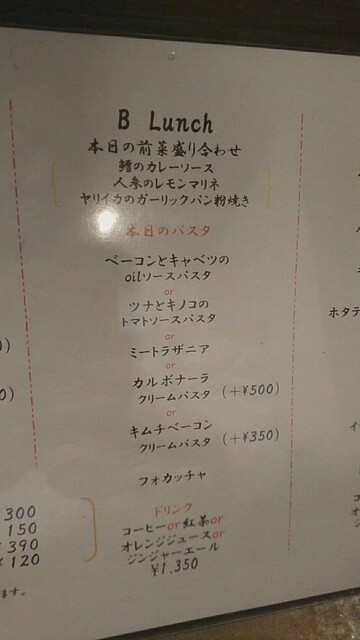 B Lunch
本日の前菜盛り合わせ
鱈のカレーソース
人参のレモンマリネ
ヤリイカのガーリックパン粉焼き
本日のパスタ
ベーコンとキャベツの
oilソースパスタ
or
ツナとキノコの
トマトソースパスタ
or
ミートラザニア
or
カルボナーラ
クリームパスタ (+¥500)
or
キムチベーコン
クリームパスタ (+¥350)
フォカッチャ
ドリンク
コーヒーor紅茶or
オレンジジュースor
ジンジャーエール
¥1.350
300
150
¥390
¥120
ます。
ホタテ